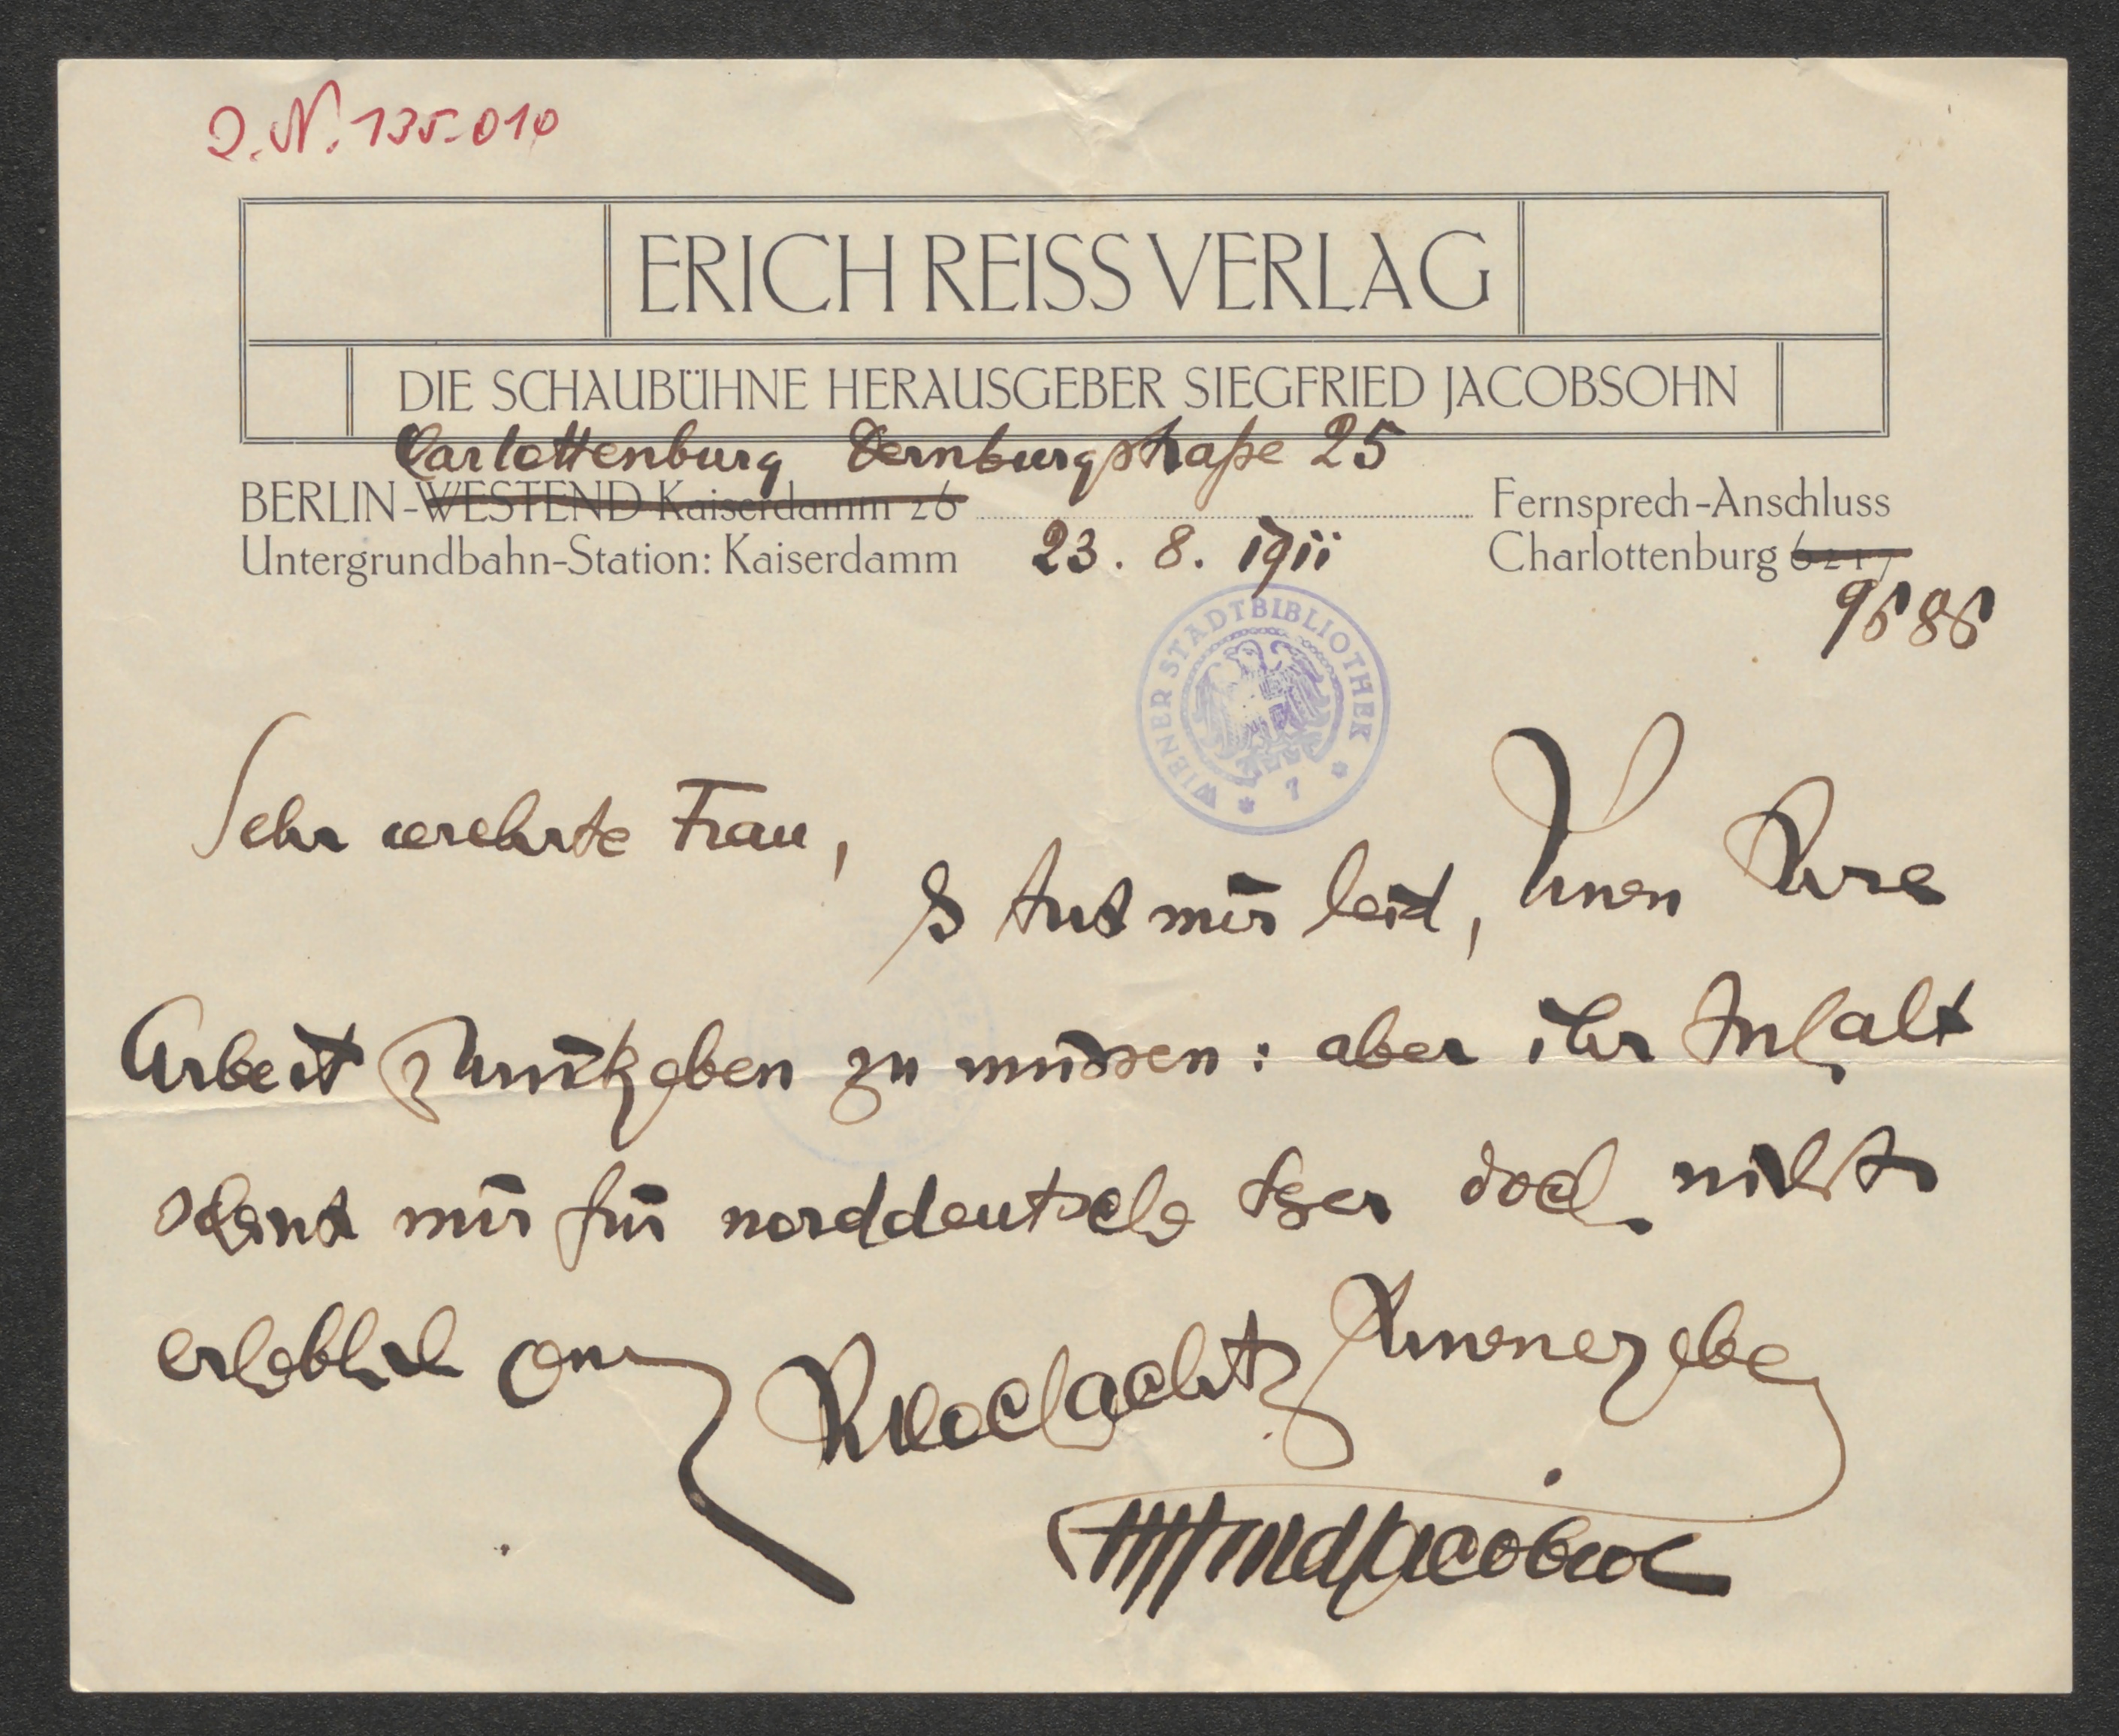 J. N. 135.010
ERICH REISS VERLAG
DIE SCHAUBÜHNE HERAUSGEBER SIEGFRIED JACOBSOHN
Carlottenburg Dernburgstraße 25
BERLIN-WESTEND Kaiserdamm 26 Fernsprech-Anschluss
Untergrundbahn-Station: Kaiserdamm 23. 8. 1911 Charlottenburg 6217
9686
WIENER STADTBIBLIOTHEK
Sehr verehrte Frau,
es tut mir leid, Ihnen Ihre
Arbeit zurückgeben zu müssen: aber ihr Inhalt
scheint mir für norddeutsche Leser doch nicht
erheblich
Hochachtg Ihnenergebe
Siegfried Jacobsohn